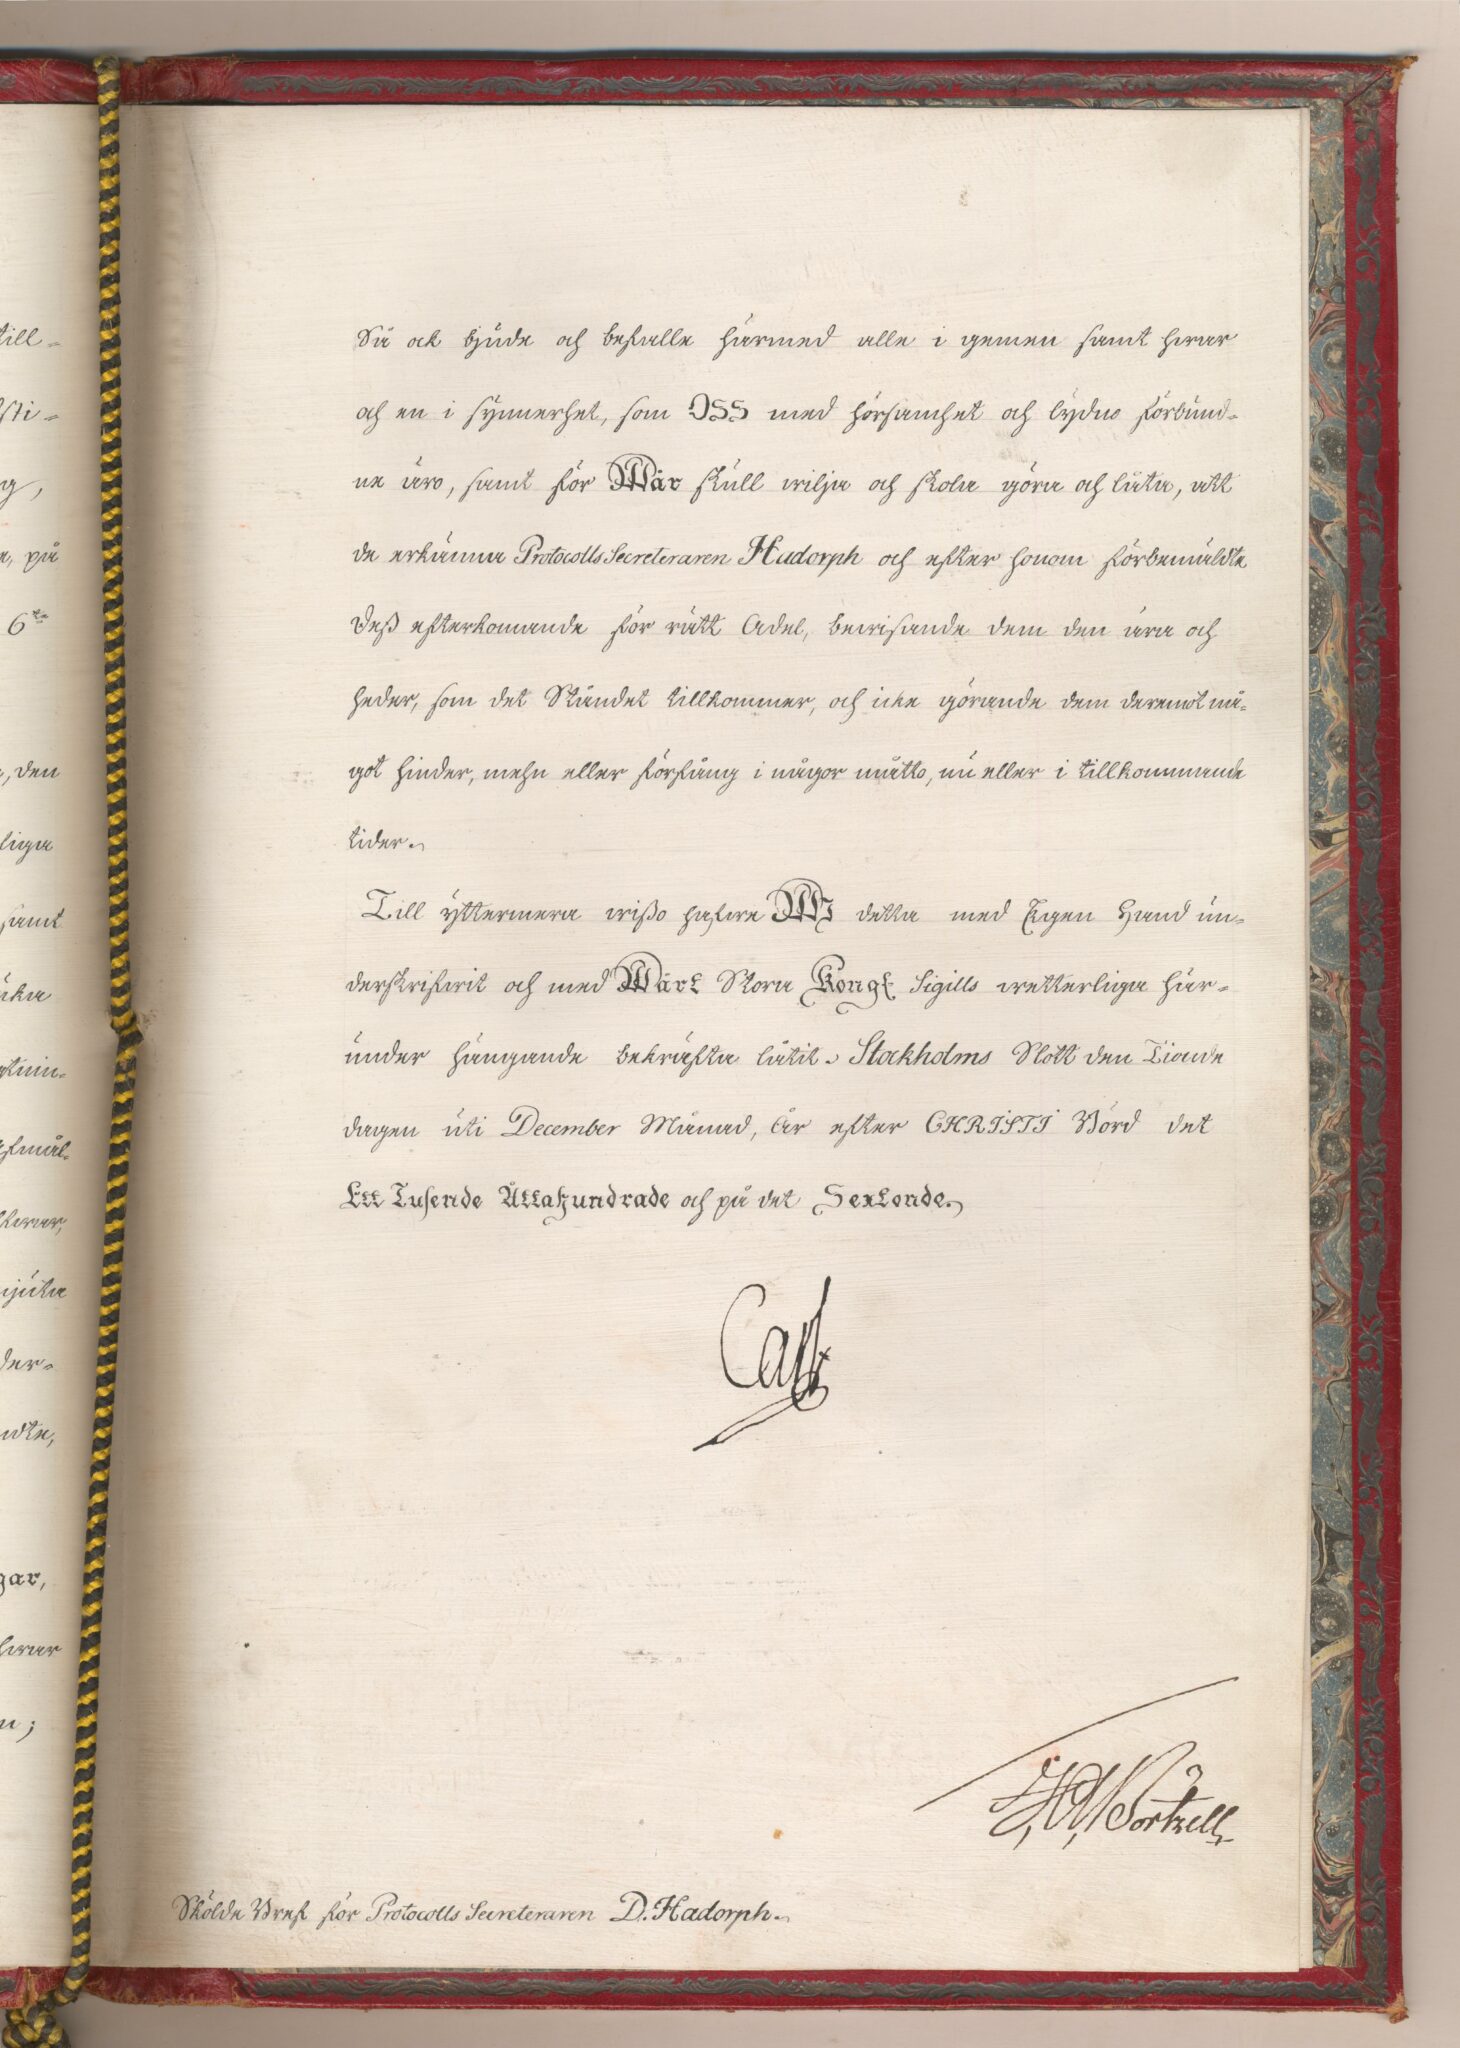 till-
sti-
g,
, på
6te
, den
liga
samt
der-
gar,
n;
Så ock bjude och befalle härmed alle i gemen samt hwar
och en i synnerhet, som OSS med hörsamhet och lydno förbund-
ne äro, samt för Wår skull wilja och skola göra och låta, att
de erkänna Protocolls Secreteraren Hadorph och efter honom förbemäldte
Deß efterkomande för rätt Adel, bewisande dem den ära och
heder, som det Ståndet tillkommer, och icke görande dem deremot nå-
got hinder, mehn eller förfång i någor måtto, nu eller i tillkommande
tider.
Till yttermera wißo hafwe Wi detta med Egen Hand un-
derskrifwit och med Wårt Stora Kongl Sigills wetterliga här-
under hängande bekräfta låtit. Stockholms Slott den Tionde
dagen uti December Månad, År efter CHRISTI Börd det
Ett Tusende Åttahundrade och på det Sextonde.
Carl
Skölde Bref för Protocolls Secreteraren D. Hadorph.